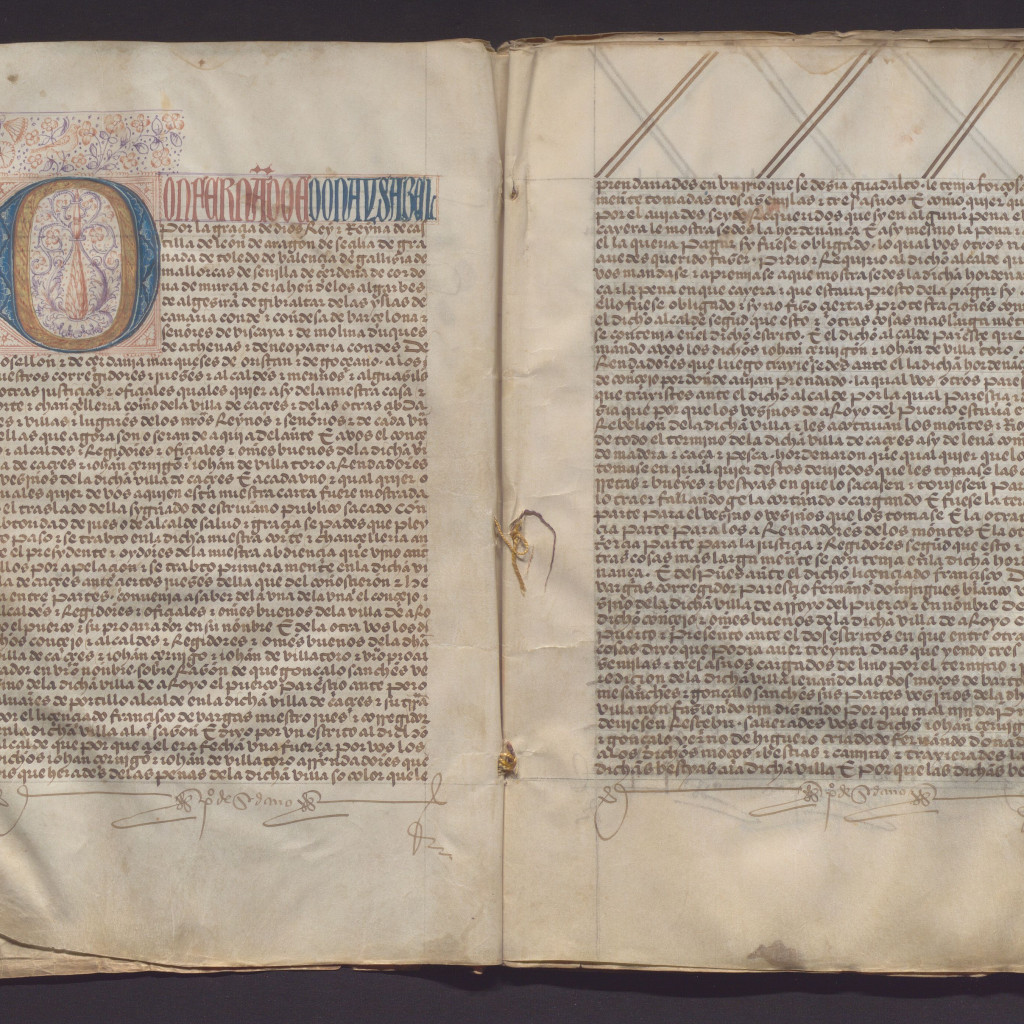 DON FERNĀDO E DOÑA YSABEL
por la graçia de dios Rey ⁊ Reyna de cas
tilla de leon de aragon de seçilia de gra
nada de toledo de valençia de gallizia de
mallorcas de seuilla de çerdeña de cordo
ua de murçia de iahen de los algarbes
de algezira de gibraltar de las yslas de
canaria conde ⁊ condesa de barçelona ⁊
señores de viscaya ⁊ de molina duques
de athenas ⁊ de neopatria condes De
osellon ⁊ de çerdania marqueses de oristan ⁊ de goçeano · a los
uestros corregidores ⁊ jueses ⁊ alcaldes ⁊ merinos ⁊ alguasiles
otras justiçias ⁊ ofiçiales quales quier asy de la nuestra casa ⁊
orte ⁊ chançelleria como de la villa de caçres ⁊ de las otras çibda
es ⁊ villas ⁊ lugares de los nr̄os Reynos ⁊ señorios ⁊ de cada vn
ellas que agora son o seran de aqui adelante E a vos el conçe
⁊ alcaldes ⁊ Regidores ⁊ ofiçiales ⁊ omes buenos de la dicha vi
a de caçres ⁊ iohan ⁊ iohan de villa toro aRendadores
vesinos de la dicha villa de caçres E a cada vno ⁊ qual quier o
uales quier de vos a quien esta nuestra carta fuere mostrada
el traslado della sygnado de escriuano publico sacado con
abtoridad de jues o de alcalde salud ⁊ graçia sepades que pley
paso ⁊ se trabto en la dicha nuestra corte ⁊ chançelleria an
e el presydente ⁊ oydores de la nuestra abdiençia que vino ante
llos por apelaçion ⁊ se trabto primera mente en la dicha vi
la de caçres ante çiertos jueses della que del conosçieron ⁊ he
a entre partes · conuenia a saber de la vna el conçejo ⁊
alcaldes ⁊ Regidores ⁊ ofiçiales ⁊ omes buenos de la villa de aRo
o el puerco ⁊ su procurador en su nonbre E de la otra vos los di
chos conçejo ⁊ alcaldes ⁊ Regidores ⁊ omes buenos de la dha
villa de caçres ⁊ iohan ⁊ iohan de villa toro ⁊ vr̄o procura
ador en vr̄o nonbre sobre Rason de que gonçalo sanches ve
sino de la dicha villa de aRoyo el puerco paresçio ante pero
de portillo alcalde en la dicha villa de caçres ⁊ su trr̄a
por el liçençiado françisco de vargas nuestro jues ⁊ corregidor
en la dicha villa a la sason E dixo por vn escrito al dicho
alcalde que por que a el era fecha vna fuerça por vos los
dichos iohan ⁊ iohan de villa toro aRendadores
os que herades de las penas de la dicha villa so color que le
pº de
prendariades en vn rrio que se desia guadalto · le tenia forçosa
mente tomadas tres asemilas ⁊ tres asnos E como quier qu
por el auia des seydo Requeridos que sy en alguna pena el
cayera le mostrasedes la hordenança E asy mesmo la pena
el la queria pagar sy fuese obligado · lo qual vos otros n
auedes querido faser · pidio ⁊ Requirio al dicho alcalde qu
vos mandase ⁊ apremiase a que mostrasedes la dicha hordena
ça ⁊ la pena en que cayera ⁊ que estaua presto de la pagar sy
ello fuese obligado ⁊ sy no fizo çiertas protestaçiones
el dicho alcalde segund que esto ⁊ otras cosas mas larga mente
se contenia en el dicho escrito · E el dicho alcalde paresçe que
mando a vos los dichos iohan ⁊ iohan de villa toro
Rendadores que luego traxiesedes ante el la dicha hordenaça
de conçejo por donde auian prendado · la qual vos otros pares
que traxistes ante el dicho alcalde por la qual paresçia ⁊
dia que por que los vesinos de aRoyo del puerco estauan e
Rebelion de la dicha villa ⁊ les cortauan los montes ⁊ Ro
de todo el termino de la dicha villa de caçres asy de leña com
de madera ⁊ caça ⁊ pesca · hordenaron que qual quier que lo
tomase en qual quier destos deuiedos que les tomase las
rretas ⁊ bueyes ⁊ bestyas en que lo sacasen ⁊ touiesen par
lo traer fallandogelo cortando o cargando E fuese la ter
parte para el vesino o vesinos que los tomase E la otra
çia parte para los aRendadores de los montes E la ot
terçia parte para la justiçia ⁊ Regidores segund que esto ⁊
tras cosas mas larga mente se contenia en la dicha hor
nança · E despues ante el dicho liçençiado françisco D
vargas corregidor paresçio fernand domingues blanco v
sino de la dicha villa de aRoyo del puerco ⁊ en nonbre De
dicho conçejo ⁊ omes buenos de la dicha villa de aRoyo e
puerco ⁊ presento ante el dos escritos en que entre otra
cosas dixo que podia auer treynta dias que yendo tres
semilas ⁊ tres asnos cargados de lino por el termino ⁊
rediçion de la dicha villa leuandolas dos moços de bart
me sanches ⁊ gonçalo sanches sus partes vesinos de la dh
villa non fasiendo nin disiendo por que mal nin da
deuiesen Resçebir · salierades vos el dicho iohan
⁊ gonçalo yerno de higuero criado de fernando
a los dichos moços ⁊ bestias ⁊ camino ⁊ traxierades la
dichas bestyas a la dicha villa E por que las dichas be
pº de